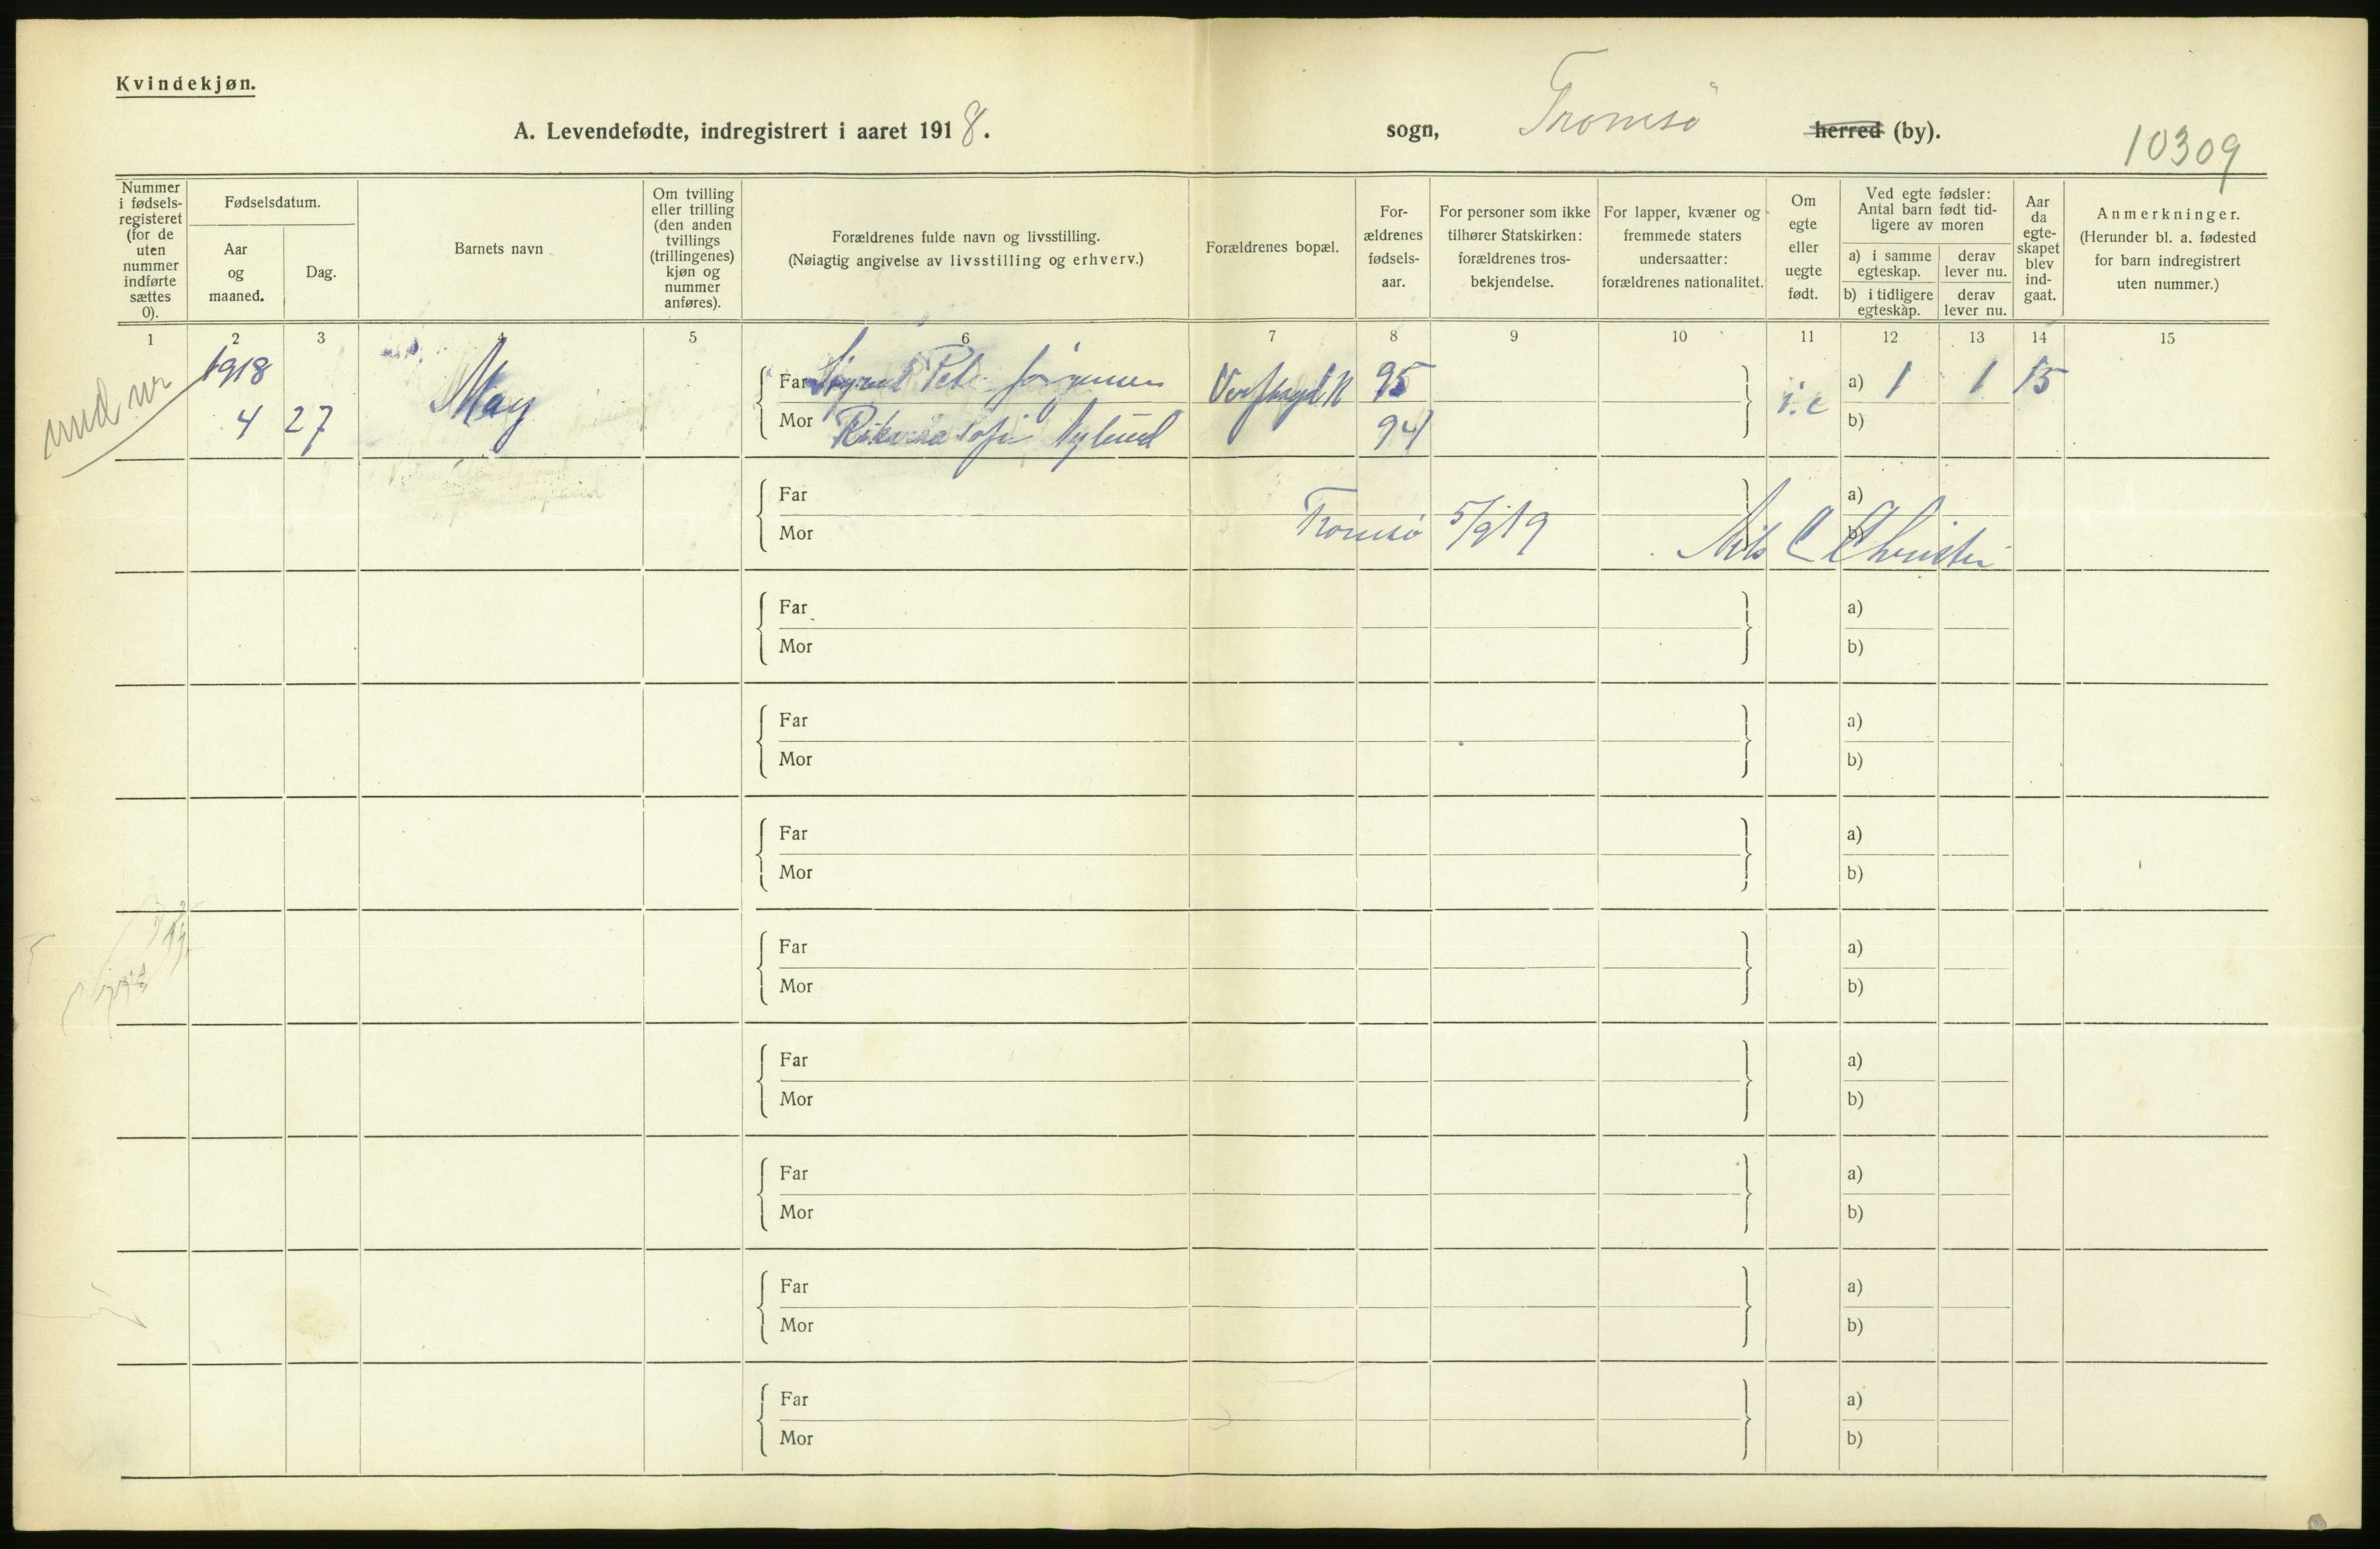 Kvindekjøn.
A. Levendefødte, indregistrert i aaret 1918.
sogn, Tromsö herred (by).
10309
Nummer i fødsels-registeret (for de uten nummer indførte sættes 0).
Fødselsdatum.
Aar og maaned.
Dag.
Barnets navn
Om tvilling eller trilling (den anden tvillings (trillingenes) kjøn og nummer anføres).
Forældrenes fulde navn og livsstilling.
(Nøiagtig angivelse av livsstilling og erhverv.)
Forældrenes bopæl.
For-ældrenes fødsels-aar.
For personer som ikke tilhører Statskirken: forældrenes tros-bekjendelse.
For lapper, kvæner og fremmede staters undersaatter: forældrenes nationalitet.
Om egte eller uegte født.
Ved egte fødsler: Antal barn født tid-ligere av moren
a) i samme egteskap.
derav lever nu.
b) i tidligere egteskap.
derav lever nu.
Aar da egte-skapet blev ind-gaat.
Anmerkninger.
(Herunder bl. a. fødested for barn indregistrert uten nummer.)
1 2 3 4 5 6 7 8 9 10 11 12 13 14 15
1918
4 27 May
Far Jørgensen 95 a) 1 1 15
Mor Sofie Nylund 94 i.e b)
Far a)
Mor b)
Tromsö 5/9 19 Nils C
Far a)
Mor b)
Far a)
Mor b)
Far a)
Mor b)
Far a)
Mor b)
Far a)
Mor b)
Far a)
Mor b)
Far a)
Mor b)
Far a)
Mor b)